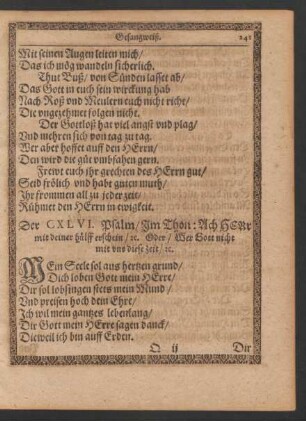 Gesangweiß. 241
Mit seinen Augen leiten mich/
Das ich mög wandeln sicherlich.
Thut Buß/ von Sünden lasset ab/
Das Gott in euch sein wirckung hab
Nach Roß vnd Meulern euch nicht richt/
Die vngezehmet folgen nicht.
Der Gottloß hat viel angst vnd plag/
Vnd mehren sich von tag zu tag.
Wer aber hoffet auff den HErrn/
Den wird die güt vmbfahen gern.
Frewt euch jhr grechten des HErrn gut/
Seid frölich vnd habt guten muth/
Jhr frommen all zu jeder zeit/
Rühmet den HErrn in ewigkeit.
Der CXLVI. Psalm/ Jm Thon: Ach HERr
mit deiner hülff erschein/ ꝛc. Oder/ Wer Gott nicht
mit vns diese zeit/ ꝛc.
MEin Seele sol aus hertzen grund/
Dich loben Gott mein HErre/
Dir sol lobsingen stets mein Mund/
Vnd preisen hoch dein Ehre/
Jch wil mein gantzes lebenlang/
Dir Gott mein HErre sagen danck/
Dieweil ich bin auff Erden.
Q ij Dir